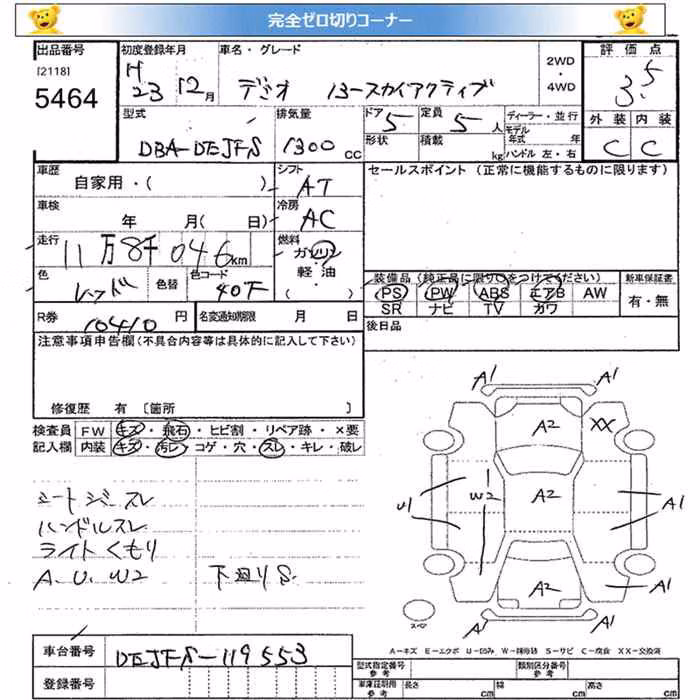 完全ゼロ切りコーナー
出品番号 初度登録年月 車名・グレード 2WD ・ 4WD 評価点
[2118] 5464
H23 12月 デミオ 13-スカイアクティブ 3.5
型式 排気量 ドア 定員 ディーラー・並行 外装 内装
DBA-DEJFS 1300 cc 5 5人 モデル年式 年 C C
形状 積載 kg ハンドル 左・右
車歴 シフト セールスポイント (正常に機能するものに限ります)
自家用・( ) AT
車検 冷房
年 月( 日) AC
走行 燃料
11万8千046km ガソリン
軽・油
( ・ )
色 色替 色コード
レッド 40F
装備品 (純正品に限り○をつけてください) 新車保証書
PS PW ABS エアB AW 有・無
SR ナビ TV カワ
R券 10410円 名変通知期限 月 日 後日品
注意事項申告欄(不具合内容等は具体的に記入して下さい)
修復歴 有 [箇所 ]
検査員 FW キズ・飛石・ヒビ割・リペア跡・×要
記入欄 内装 キズ・汚レ・コゲ・穴・スレ・キレ・破レ
シートジミスレ
ハンドルスレ
ライトくもり
A. U. W2 下廻りS.
A1 A1
A2 XX
U1 W2 A2 A1
A1
A2 A1
A1 A1
スペア
A-キズ E-エクボ U-凹み W-補修跡 S-サビ C-腐食 XX-交換済
車台番号 DEJFS-119553
登録番号
型式指定番号 参考 類別区分番号 参考
車庫証明用 参考 長さ cm 幅 cm 高さ cm